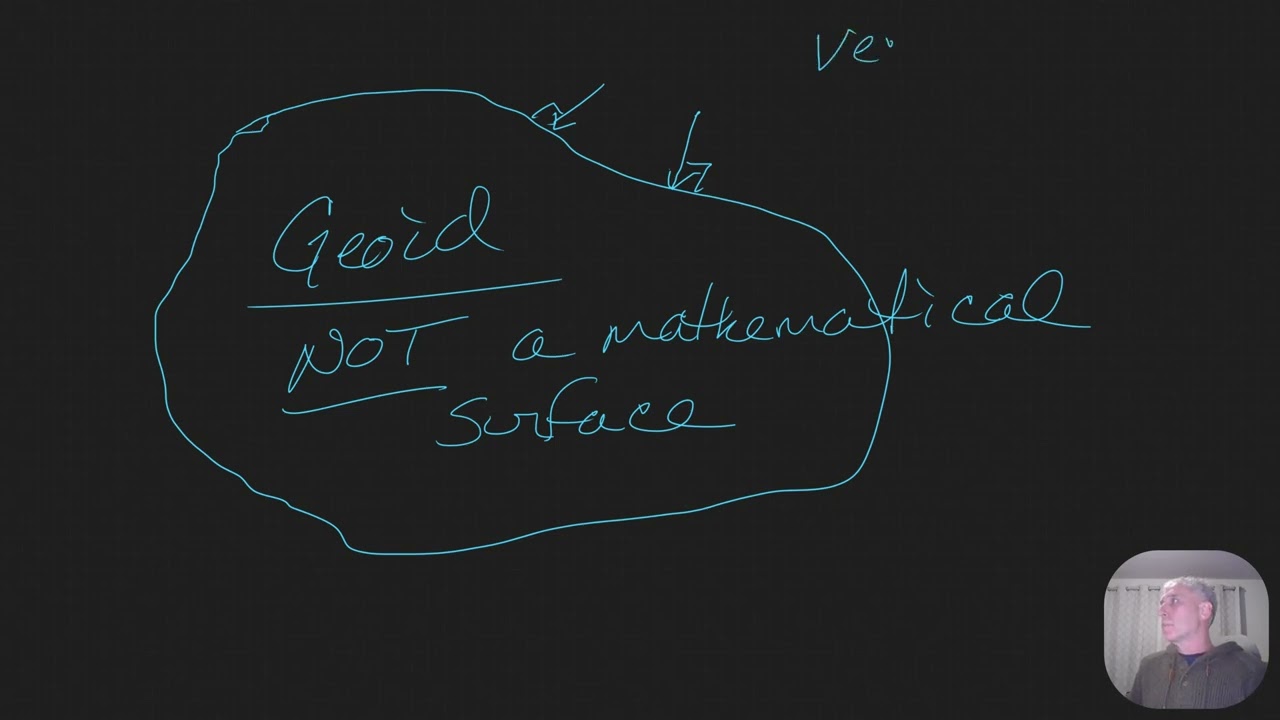 Ve
Geoid
NOT a mathematical
surface